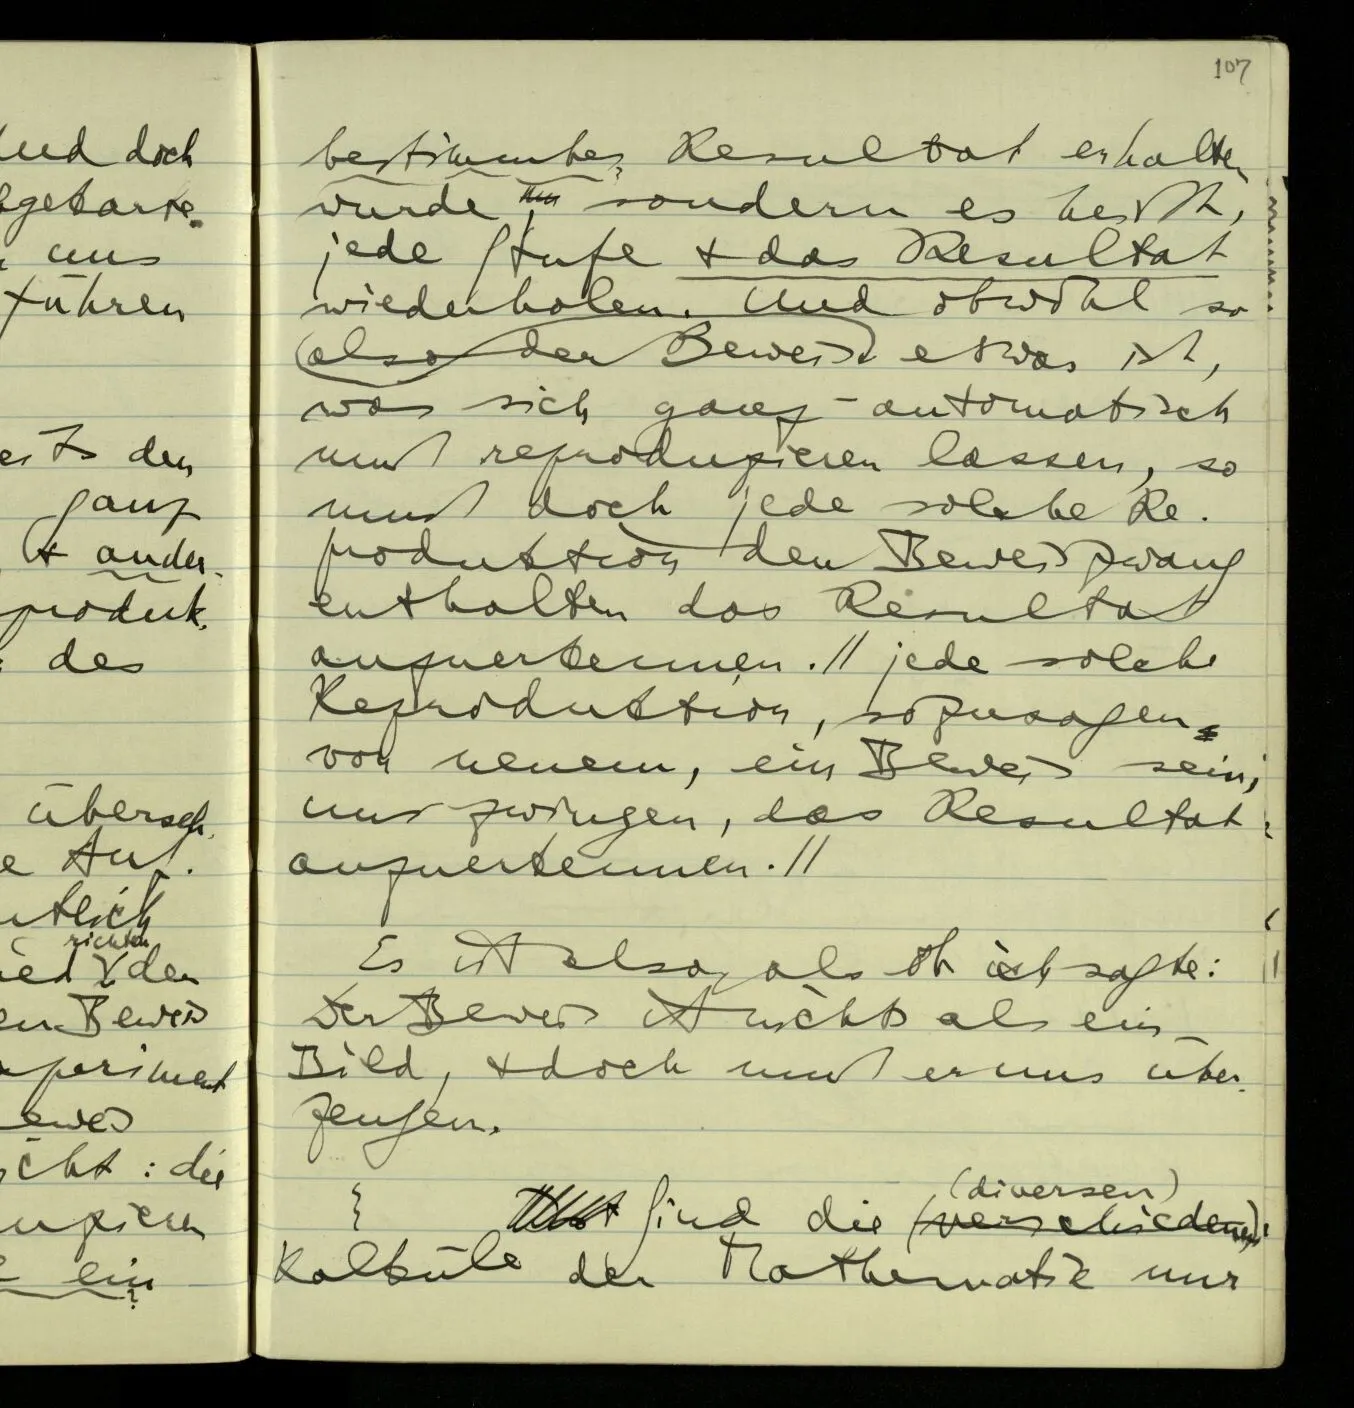 und doch
führen
den
ganz
+ ander-
produk-
des
überseh-
richten
den
Beweis
ein
107
bestimmtes Resultat erhalten
wurde, sondern es heißt,
jede Stufe + das Resultat
wiederholen. Und obwohl so
also der Beweis etwas ist,
was sich ganz automatisch
muß reproduzieren lassen, so
muß doch jede solche Re-
produktion den Beweiszwang
enthalten das Resultat
anzuerkennen. // jede solche
Reproduktion, sozusagen
von neuem, ein Beweis sein;
uns zwingen, das Resultat
anzuerkennen. //
Es ist also, als ob ich sagte:
Der Beweis ist nichts als ein
Bild, + doch muß er uns über-
zeugen.
(diversen)
Sind die (verschiedenen)
Kalküle der Mathematik nur